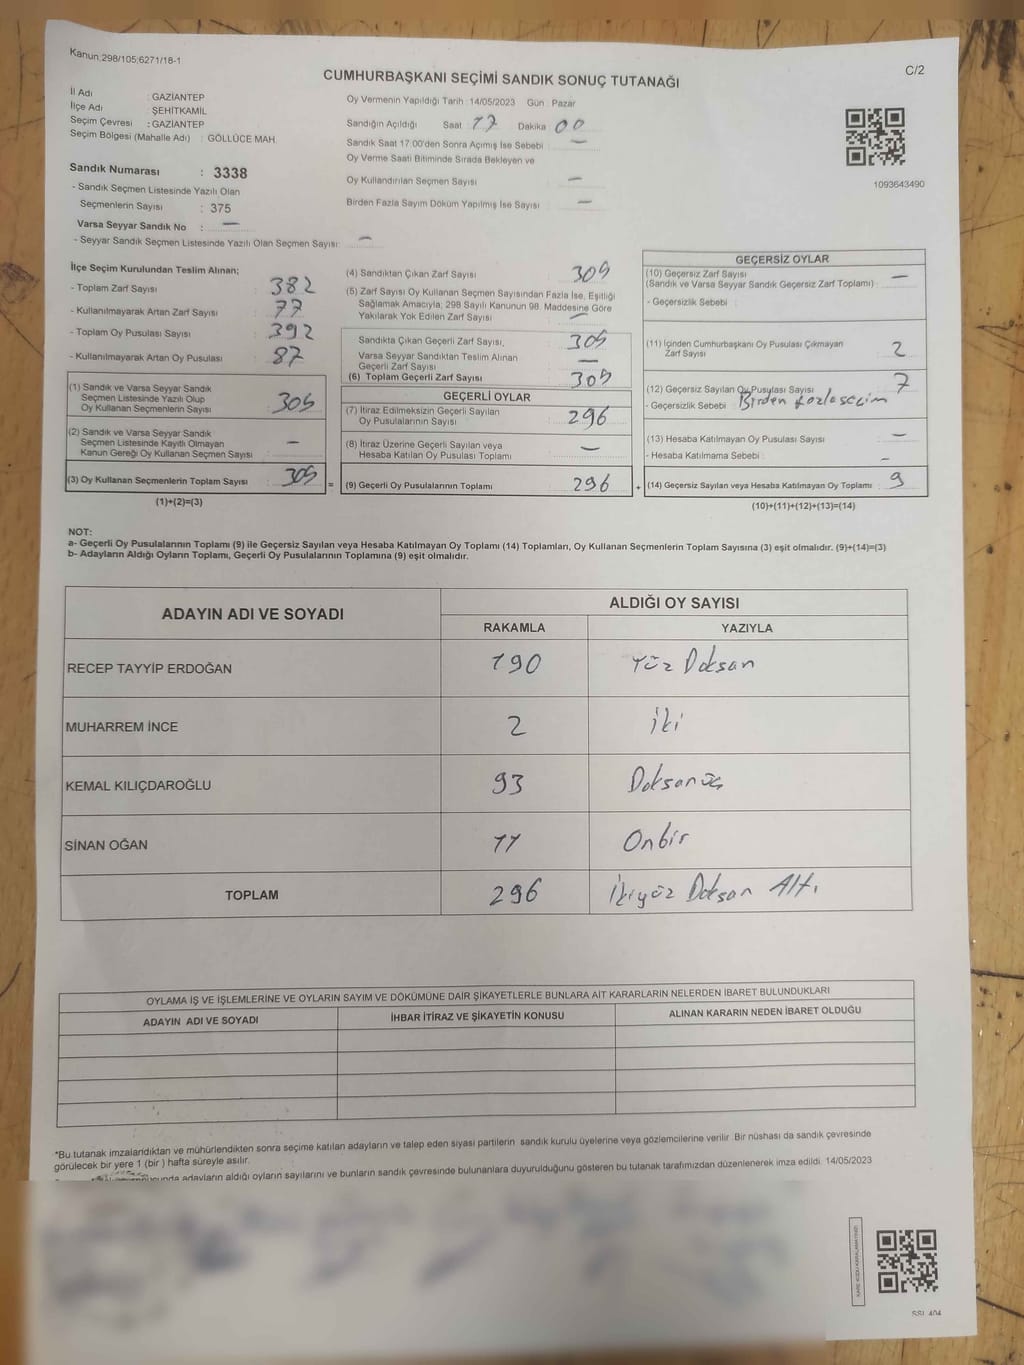 Kanun;298/105;6271/18-1
C/2
CUMHURBAŞKANI SEÇİMİ SANDIK SONUÇ TUTANAĞI
İl Adı : GAZİANTEP
İlçe Adı : ŞEHİTKAMİL
Seçim Çevresi : GAZİANTEP
Seçim Bölgesi (Mahalle Adı) : GÖLLÜCE MAH.
Sandık Numarası : 3338
- Sandık Seçmen Listesinde Yazılı Olan
Seçmenlerin Sayısı : 375
Varsa Seyyar Sandık No : —
- Seyyar Sandık Seçmen Listesinde Yazılı Olan Seçmen Sayısı: —
Oy Vermenin Yapıldığı Tarih :14/05/2023 Gün : Pazar
Sandığın Açıldığı Saat 17 Dakika 00
Sandık Saat 17:00'den Sonra Açımış İse Sebebi : —
Oy Verme Saati Bitiminde Sırada Bekleyen ve
Oy Kullandırılan Seçmen Sayısı —
Birden Fazla Sayım Döküm Yapılmış İse Sayısı : —
1093643490
İlçe Seçim Kurulundan Teslim Alınan;
- Toplam Zarf Sayısı : 382
- Kullanılmayarak Artan Zarf Sayısı : 77
- Toplam Oy Pusulası Sayısı : 392
- Kullanılmayarak Artan Oy Pusulası : 87
(1) Sandık ve Varsa Seyyar Sandık
Seçmen Listesinde Yazılı Olup
Oy Kullanan Seçmenlerin Sayısı : 305
(2) Sandık ve Varsa Seyyar Sandık
Seçmen Listesinde Kayıtlı Olmayan
Kanun Gereği Oy Kullanan Seçmen Sayısı : —
(3) Oy Kullanan Seçmenlerin Toplam Sayısı : 305
(1)+(2)=(3)
(4) Sandıktan Çıkan Zarf Sayısı : 305
(5) Zarf Sayısı Oy Kullanan Seçmen Sayısından Fazla İse, Eşitliği
Sağlamak Amacıyla; 298 Sayılı Kanunun 98. Maddesine Göre
Yakılarak Yok Edilen Zarf Sayısı : —
Sandıkta Çıkan Geçerli Zarf Sayısı, : 305
Varsa Seyyar Sandıktan Teslim Alınan
Geçerli Zarf Sayısı : —
(6) Toplam Geçerli Zarf Sayısı : 305
GEÇERLİ OYLAR
(7) İtiraz Edilmeksizin Geçerli Sayılan
Oy Pusulalarının Sayısı : 296
(8) İtiraz Üzerine Geçerli Sayılan veya
Hesaba Katılan Oy Pusulası Toplamı : —
=
(9) Geçerli Oy Pusulalarının Toplamı : 296
+
GEÇERSİZ OYLAR
(10) Geçersiz Zarf Sayısı
(Sandık ve Varsa Seyyar Sandık Geçersiz Zarf Toplamı) : —
- Geçersizlik Sebebi :
(11) İçinden Cumhurbaşkanı Oy Pusulası Çıkmayan
Zarf Sayısı : 2
(12) Geçersiz Sayılan Oy Pusulası Sayısı : 7
- Geçersizlik Sebebi : Birden fazla seçim
(13) Hesaba Katılmayan Oy Pusulası Sayısı : —
- Hesaba Katılmama Sebebi : —
(14) Geçersiz Sayılan veya Hesaba Katılmayan Oy Toplamı : 9
(10)+(11)+(12)+(13)=(14)
NOT:
a- Geçerli Oy Pusulalarının Toplamı (9) ile Geçersiz Sayılan veya Hesaba Katılmayan Oy Toplamı (14) Toplamları, Oy Kullanan Seçmenlerin Toplam Sayısına (3) eşit olmalıdır. (9)+(14)=(3)
b- Adayların Aldığı Oyların Toplamı, Geçerli Oy Pusulalarının Toplamına (9) eşit olmalıdır.
ADAYIN ADI VE SOYADI
ALDIĞI OY SAYISI
RAKAMLA YAZIYLA
RECEP TAYYİP ERDOĞAN 190 Yüz Doksan
MUHARREM İNCE 2 İki
KEMAL KILIÇDAROĞLU 93 Doksanüç
SİNAN OĞAN 11 Onbir
TOPLAM 296 İkiyüz Doksan Altı
OYLAMA İŞ VE İŞLEMLERİNE VE OYLARIN SAYIM VE DÖKÜMÜNE DAİR ŞİKAYETLERLE BUNLARA AİT KARARLARIN NELERDEN İBARET BULUNDUKLARI
ADAYIN ADI VE SOYADI İHBAR İTİRAZ VE ŞİKAYETİN KONUSU ALINAN KARARIN NEDEN İBARET OLDUĞU
*Bu tutanak imzalandıktan ve mühürlendikten sonra seçime katılan adayların ve talep eden siyasi partilerin sandık kurulu üyelerine veya gözlemcilerine verilir. Bir nüshası da sandık çevresinde
görülecek bir yere 1 (bir ) hafta süreyle asılır.
adayların aldığı oyların sayılarını ve bunların sandık çevresinde bulunanlara duyurulduğunu gösteren bu tutanak tarafımızdan düzenlenerek imza edildi. 14/05/2023
KARE KODU KARALAMAYINIZ!